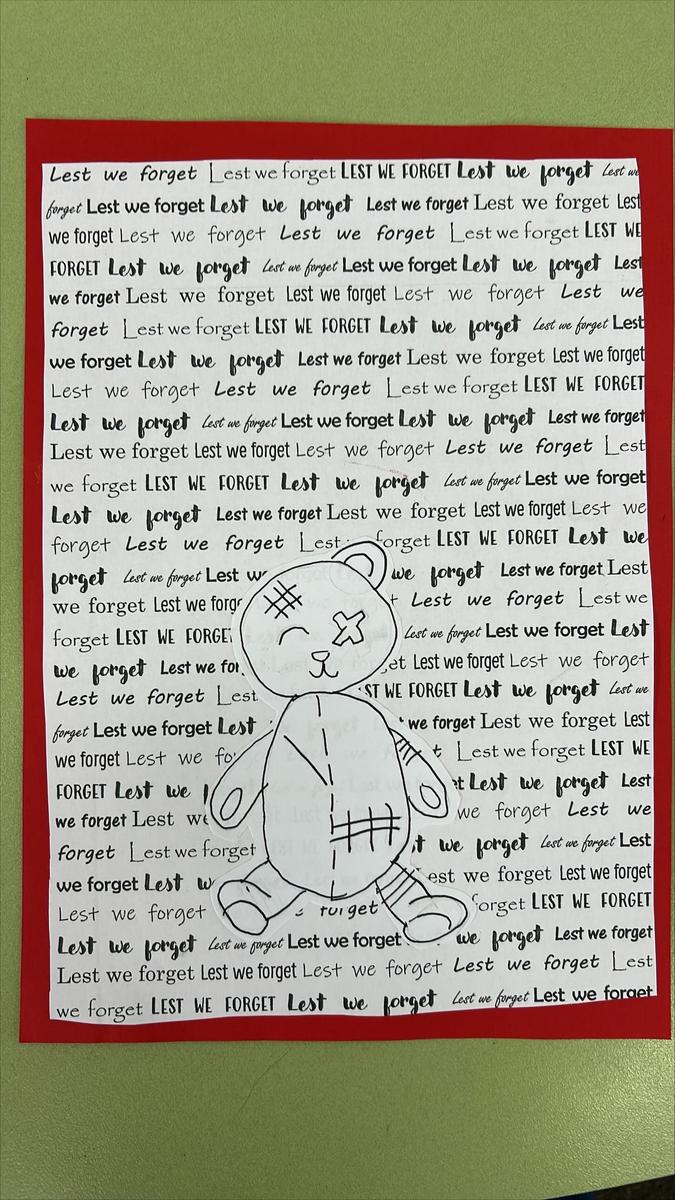 Lest we forget Lest we forget LEST WE FORGET Lest we forget Lest we
forget Lest we forget Lest we forget Lest we forget Lest we forget Lest
we forget Lest we forget Lest we forget Lest we forget LEST WE
FORGET Lest we forget Lest we forget Lest we forget Lest we forget Lest
we forget Lest we forget Lest we forget Lest we forget Lest we
forget Lest we forget LEST WE FORGET Lest we forget Lest we forget Lest
we forget Lest we forget Lest we forget Lest we forget Lest we forget
Lest we forget Lest we forget Lest we forget LEST WE FORGET
Lest we forget Lest we forget Lest we forget Lest we forget Lest we forget
Lest we forget Lest we forget Lest we forget Lest we forget Lest
we forget LEST WE FORGET Lest we forget Lest we forget Lest we forget
Lest we forget Lest we forget Lest we forget Lest we forget Lest we
forget Lest we forget Lest forget LEST WE FORGET Lest we
forget Lest we forget Lest we forget Lest we forget Lest
we forget Lest we forg Lest we forget Lest we
forget LEST WE FORGE Lest we forget Lest we forget Lest
we forget Lest we for et Lest we forget Lest we forget
Lest we forget Lest ST WE FORGET Lest we forget Lest we
forget Lest we forget Lest we forget Lest we forget Lest
we forget Lest we fo t Lest we forget LEST WE
FORGET Lest we t Lest we forget Lest
we forget Lest we we forget Lest we
forget Lest we forget t we forget Lest we forget Lest
we forget Lest w est we forget Lest we forget
Lest we forget forget orget LEST WE FORGET
Lest we forget Lest we forget Lest we forget we forget Lest we forget
Lest we forget Lest we forget Lest we forget Lest we forget Lest
we forget LEST WE FORGET Lest we forget Lest we forget Lest we forget